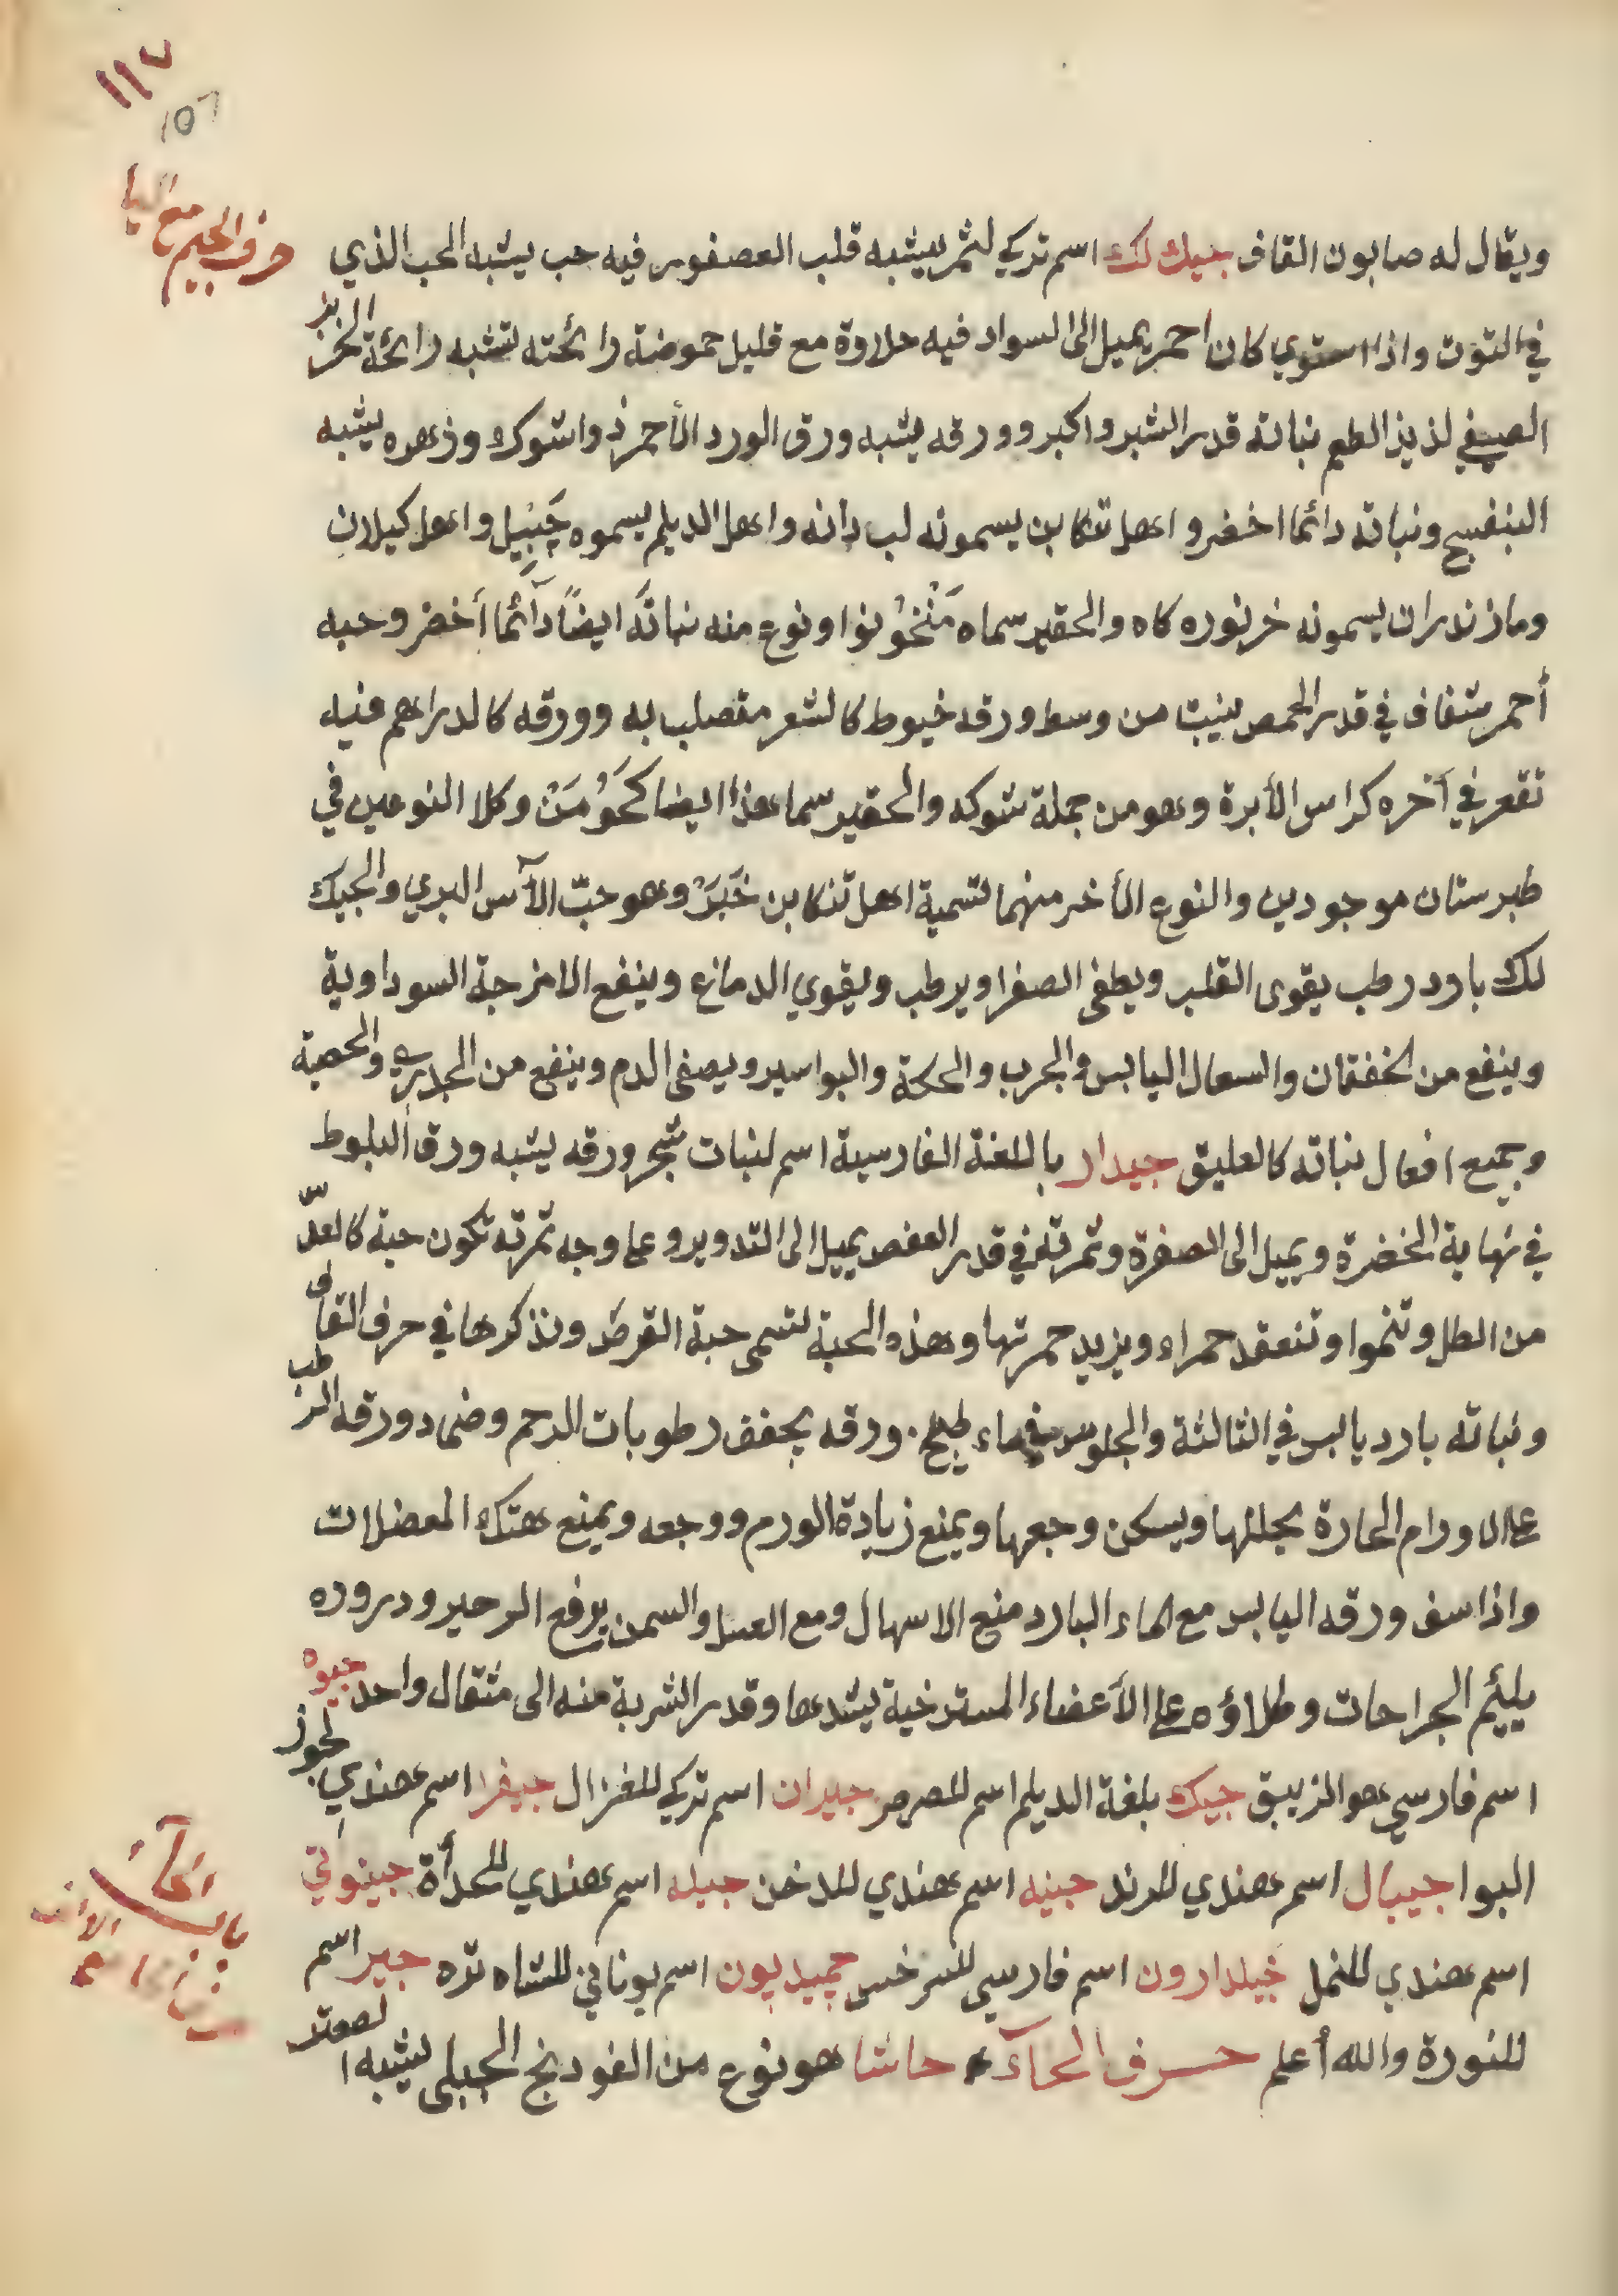 ١١٧
107
حرف الجيم مع اليا
ويقال له صابون القاف جيك لك اسم تركي لثمر يشبه قلب العصفور فيه حب يشبه الحب الذي
في التوت واذا استوي كان احمر يميل الى السواد فيه حلاوة مع قليل حموضة رائحته تشبه رائحة الخربز
الصيفي لذيذ الطعم نباته قدر الشبر واكبر وورقه يشبه ورق الورد الأحمر ذوا شوك وزهره يشبه
البنفسج ونباته دائما اخضر واهل تنكابن يسمونه لب دانه واهل الديلم يسموه چَبِيل واهل كيلان
ومازندران يسمونه خر نوره كاه والحقير سماه مَنْخُونوا ونوع منه نباته ايضاً دآئما أخضر وحبه
أحمر شفاف في قدر الحمص ينبت من وسط ورقه خيوط كالشعر متصلب به وورقه كالدراهم فيه
تقعر في آخره كراس الأبرة وهو من جملة شوكه والحقير سما هذا ايضا كَحَوُمَنْ وكلا النوعين في
طبرستان موجودين والنوع الأخر منهما تسمية اهل تنكابن خَبَرَ وهو حبّ الآس البري والجيك
لك بارد رطب يقوى القلب ويطفى الصفرا ويرطب ويقوي الدماغ وينفع الامزجة السوداوية
وينفع من الخفقان والسعال اليابس والجرب والحكة والبواسير ويصفى الدم وينفع من الجدري والحصبة
وجميع افعال نباته كالعليق جيدار باللغة الفارسية اسم لنبات شجر ورقه يشبه ورق البلوط
في نهاية الخضرة ويميل الى الصفرة وثمرته في قدر العفص يميل الى التدوير وعلى وجه ثمرته تكون حبة كالعدّس
من الطل وتنموا وتنعقد حمراء ويزيد حمرتها وهذه الحبة تسمى حبة القرطم ونذكرها في حرف القاف
ونباته بارد يابس في الثالثة والجلوس في ماء طبيخ ورقه يجفف رطوبات الرحم وضماد ورقه الرطب
على الاورام الحارة يحللها ويسكن وجعها ويمنع زيادة الورم ووجعه ويمنع هتك المعضلات
واذا سف ورقه اليابس مع الماء البارد منع الاسهال ومع العسل والسمن يرفع الزحير ودروره
يليئم الجراحات وطلاؤه على الأعضاء المسترخية يشدها وقدر الشربة منه الى مثقال واحد جيوه
اسم فارسي هو الزيبق جيك بلغة الديلم اسم للصرصر جيران اسم تركي للغزال جيفرا اسم هندي لجوز
البوا جيبال اسم هندي للرند جينه اسم هندي للدخن جيله اسم هندي للحدأة جينوتي
اسم هندي للنمل جيلدارون اسم فارسي للسرخس جميديون اسم يوناني للشاه تره جير اسم
للنورة والله أعلم حرف الحآء حاشا هو نوع من الفودنج الجبلي يشبه الصعتر
باب الحآء